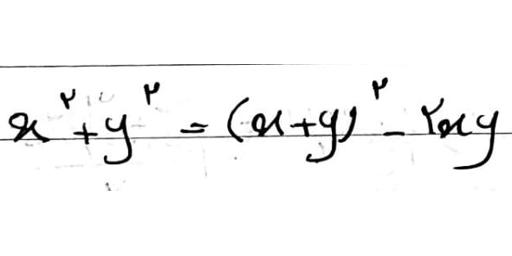 x^۲ + y^۲ = (x+y)^۲ - ۲xy